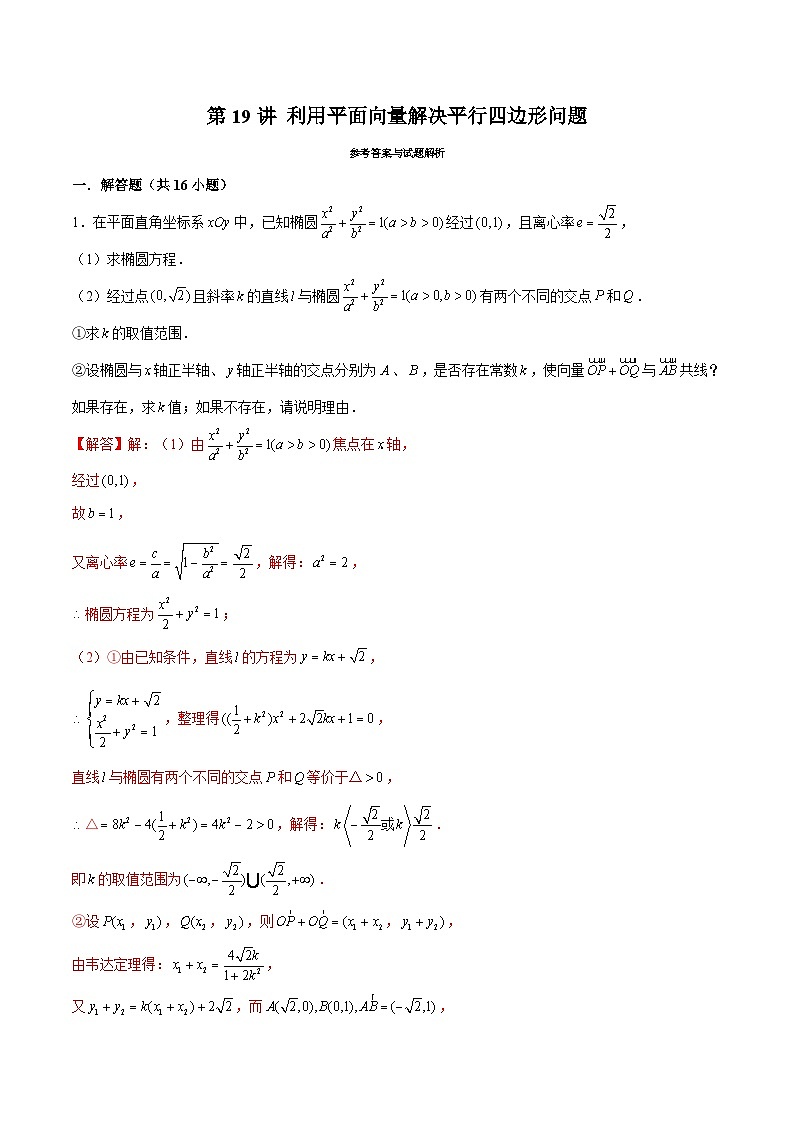 第 19 讲 利用平面向量解决平行四边形问题
参考答案与试题解析
一．解答题（共 16 小题）
1．在平面直角坐标系 xOy 中，已知椭圆 x²/a² + y²/b² = 1(a > b > 0) 经过 (0,1)，且离心率 e = √2/2，
（1）求椭圆方程．
（2）经过点 (0, √2) 且斜率 k 的直线 l 与椭圆 x²/a² + y²/b² = 1(a > 0, b > 0) 有两个不同的交点 P 和 Q．
①求 k 的取值范围．
②设椭圆与 x 轴正半轴、y 轴正半轴的交点分别为 A、B，是否存在常数 k，使向量 OP + OQ 与 AB 共线？
如果存在，求 k 值；如果不存在，请说明理由．
【解答】解：（1）由 x²/a² + y²/b² = 1(a > b > 0) 焦点在 x 轴，
经过 (0,1)，
故 b = 1，
又离心率 e = c/a = √(1 − b²/a²) = √2/2，解得：a² = 2，
∴ 椭圆方程为 x²/2 + y² = 1；
（2）①由已知条件，直线 l 的方程为 y = kx + √2，
∴ { y = kx + √2 ; x²/2 + y² = 1 ，整理得 ((1/2 + k²)x² + 2√2kx + 1 = 0，
直线 l 与椭圆有两个不同的交点 P 和 Q 等价于△ > 0，
∴ △ = 8k² − 4(1/2 + k²) = 4k² − 2 > 0，解得：k〈−√2/2 或 k〉√2/2．
即 k 的取值范围为 (−∞, −√2/2)⋃(√2/2, +∞)．
②设 P(x₁，y₁)，Q(x₂，y₂)，则 OP + OQ = (x₁ + x₂，y₁ + y₂)，
由韦达定理得：x₁ + x₂ = 4√2k/(1 + 2k²)，
又 y₁ + y₂ = k(x₁ + x₂) + 2√2，而 A(√2,0), B(0,1), AB = (−√2,1)，